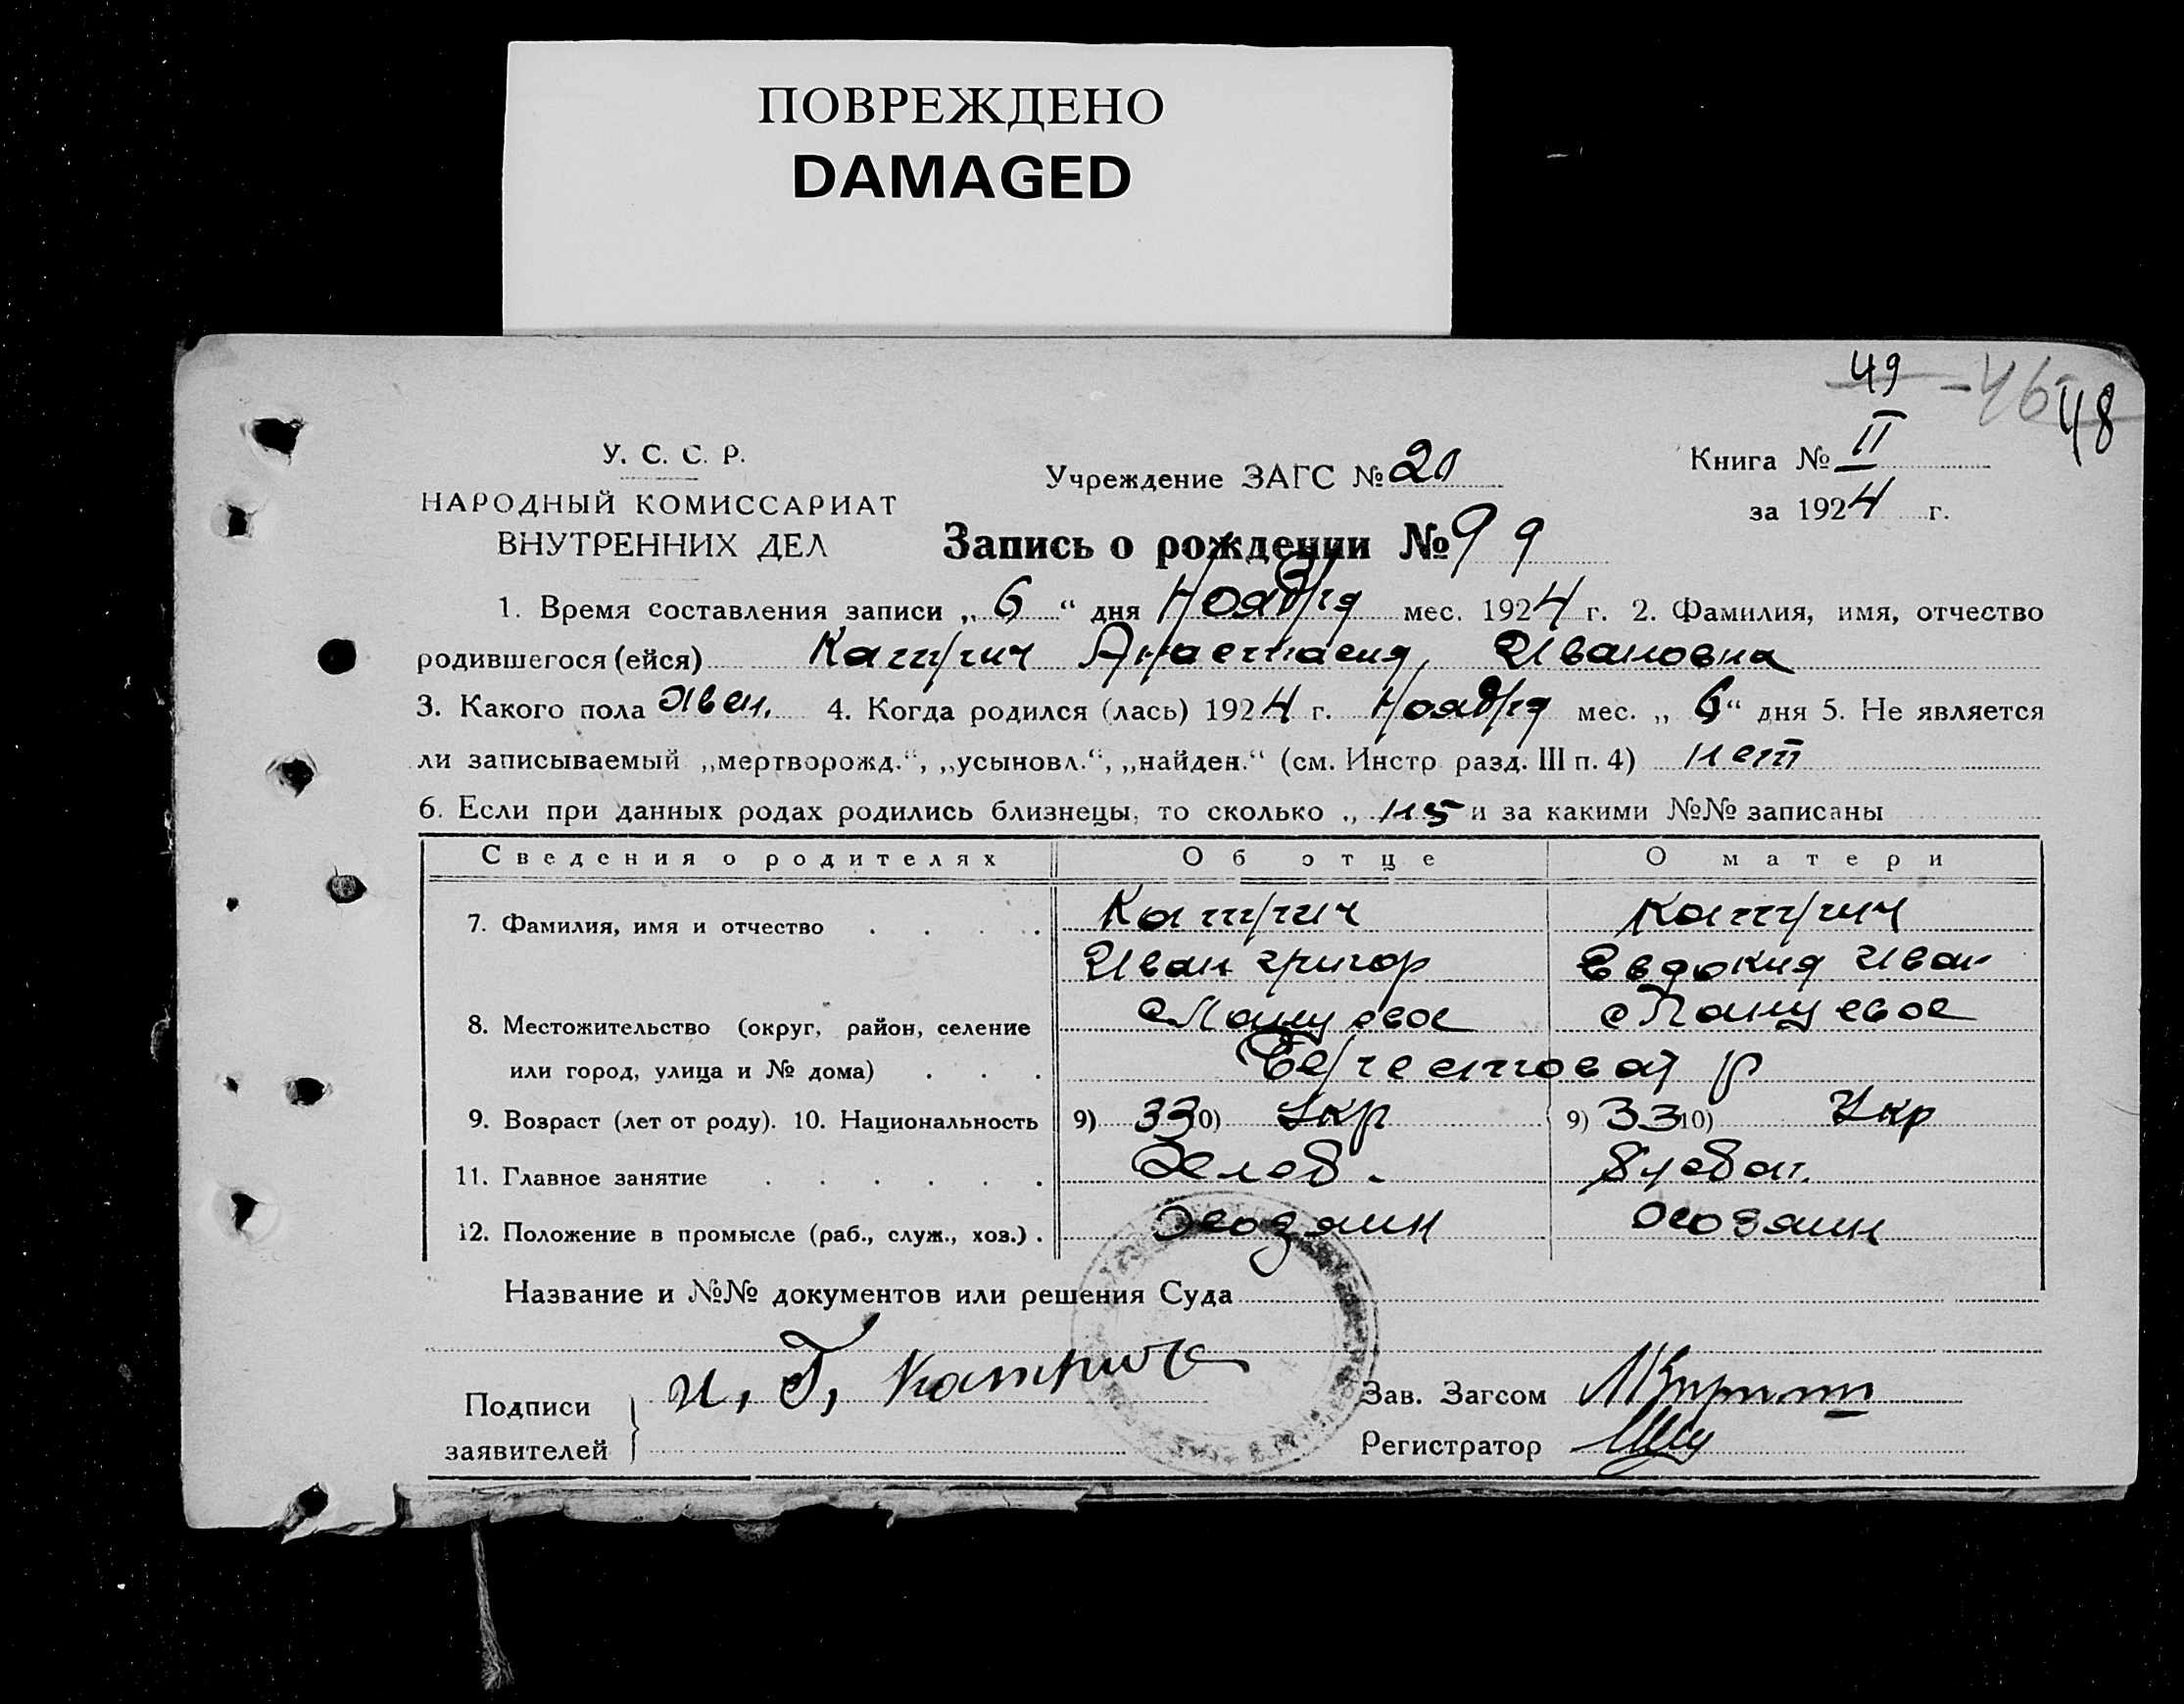 ПОВРЕЖДЕНО
DAMAGED
49 - 46 48
У. С. С. Р.
НАРОДНЫЙ КОМИССАРИАТ
ВНУТРЕННИХ ДЕЛ
Учреждение ЗАГС № 20
Книга № II
за 1924 г.
Запись о рождении № 99
1. Время составления записи „ 6 “ дня Ноября мес. 1924 г. 2. Фамилия, имя, отчество
родившегося (ейся) Катрич Анастасия Ивановна
3. Какого пола жен. 4. Когда родился (лась) 1924 г. Ноября мес. „ 6 “ дня 5. Не является
ли записываемый „мертворожд.“, „усыновл.“, „найден.“ (см. Инстр разд. III п. 4) нет
6. Если при данных родах родились близнецы, то сколько „ и за какими №№ записаны
Сведения о родителях Об отце О матери
7. Фамилия, имя и отчество . . . . Катрич Катрич
Иван Григор Евдокия Иван
8. Местожительство (округ, район, селение
или город, улица и № дома) . . . р
9. Возраст (лет от роду). 10. Национальность 9) 33 10) Укр 9) 33 10) Укр
11. Главное занятие . . . . . . Хлеб. Хлебоп.
12. Положение в промысле (раб., служ., хоз.) . Хозяин Хозяин
Название и №№ документов или решения Суда
И. Г. Катрич
Подписи
заявителей
Зав. Загсом
Регистратор